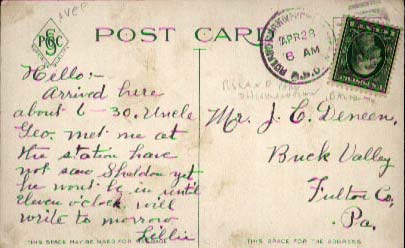 over
PCC
POST CARD
APR 28
6 AM
R.P.O.
Hello:-
Arrived here
about 6-30. Uncle
Geo. met me at
the station have
not saw Sheldon yet
he wont be in until
eleven o'clock, will
write to morrow
Lillie
THIS SPACE MAY BE USED FOR MESSAGE
Mr. J. C. Deneen,
Buck Valley
Fulton Co,
Pa.
THIS SPACE FOR THE ADDRESS